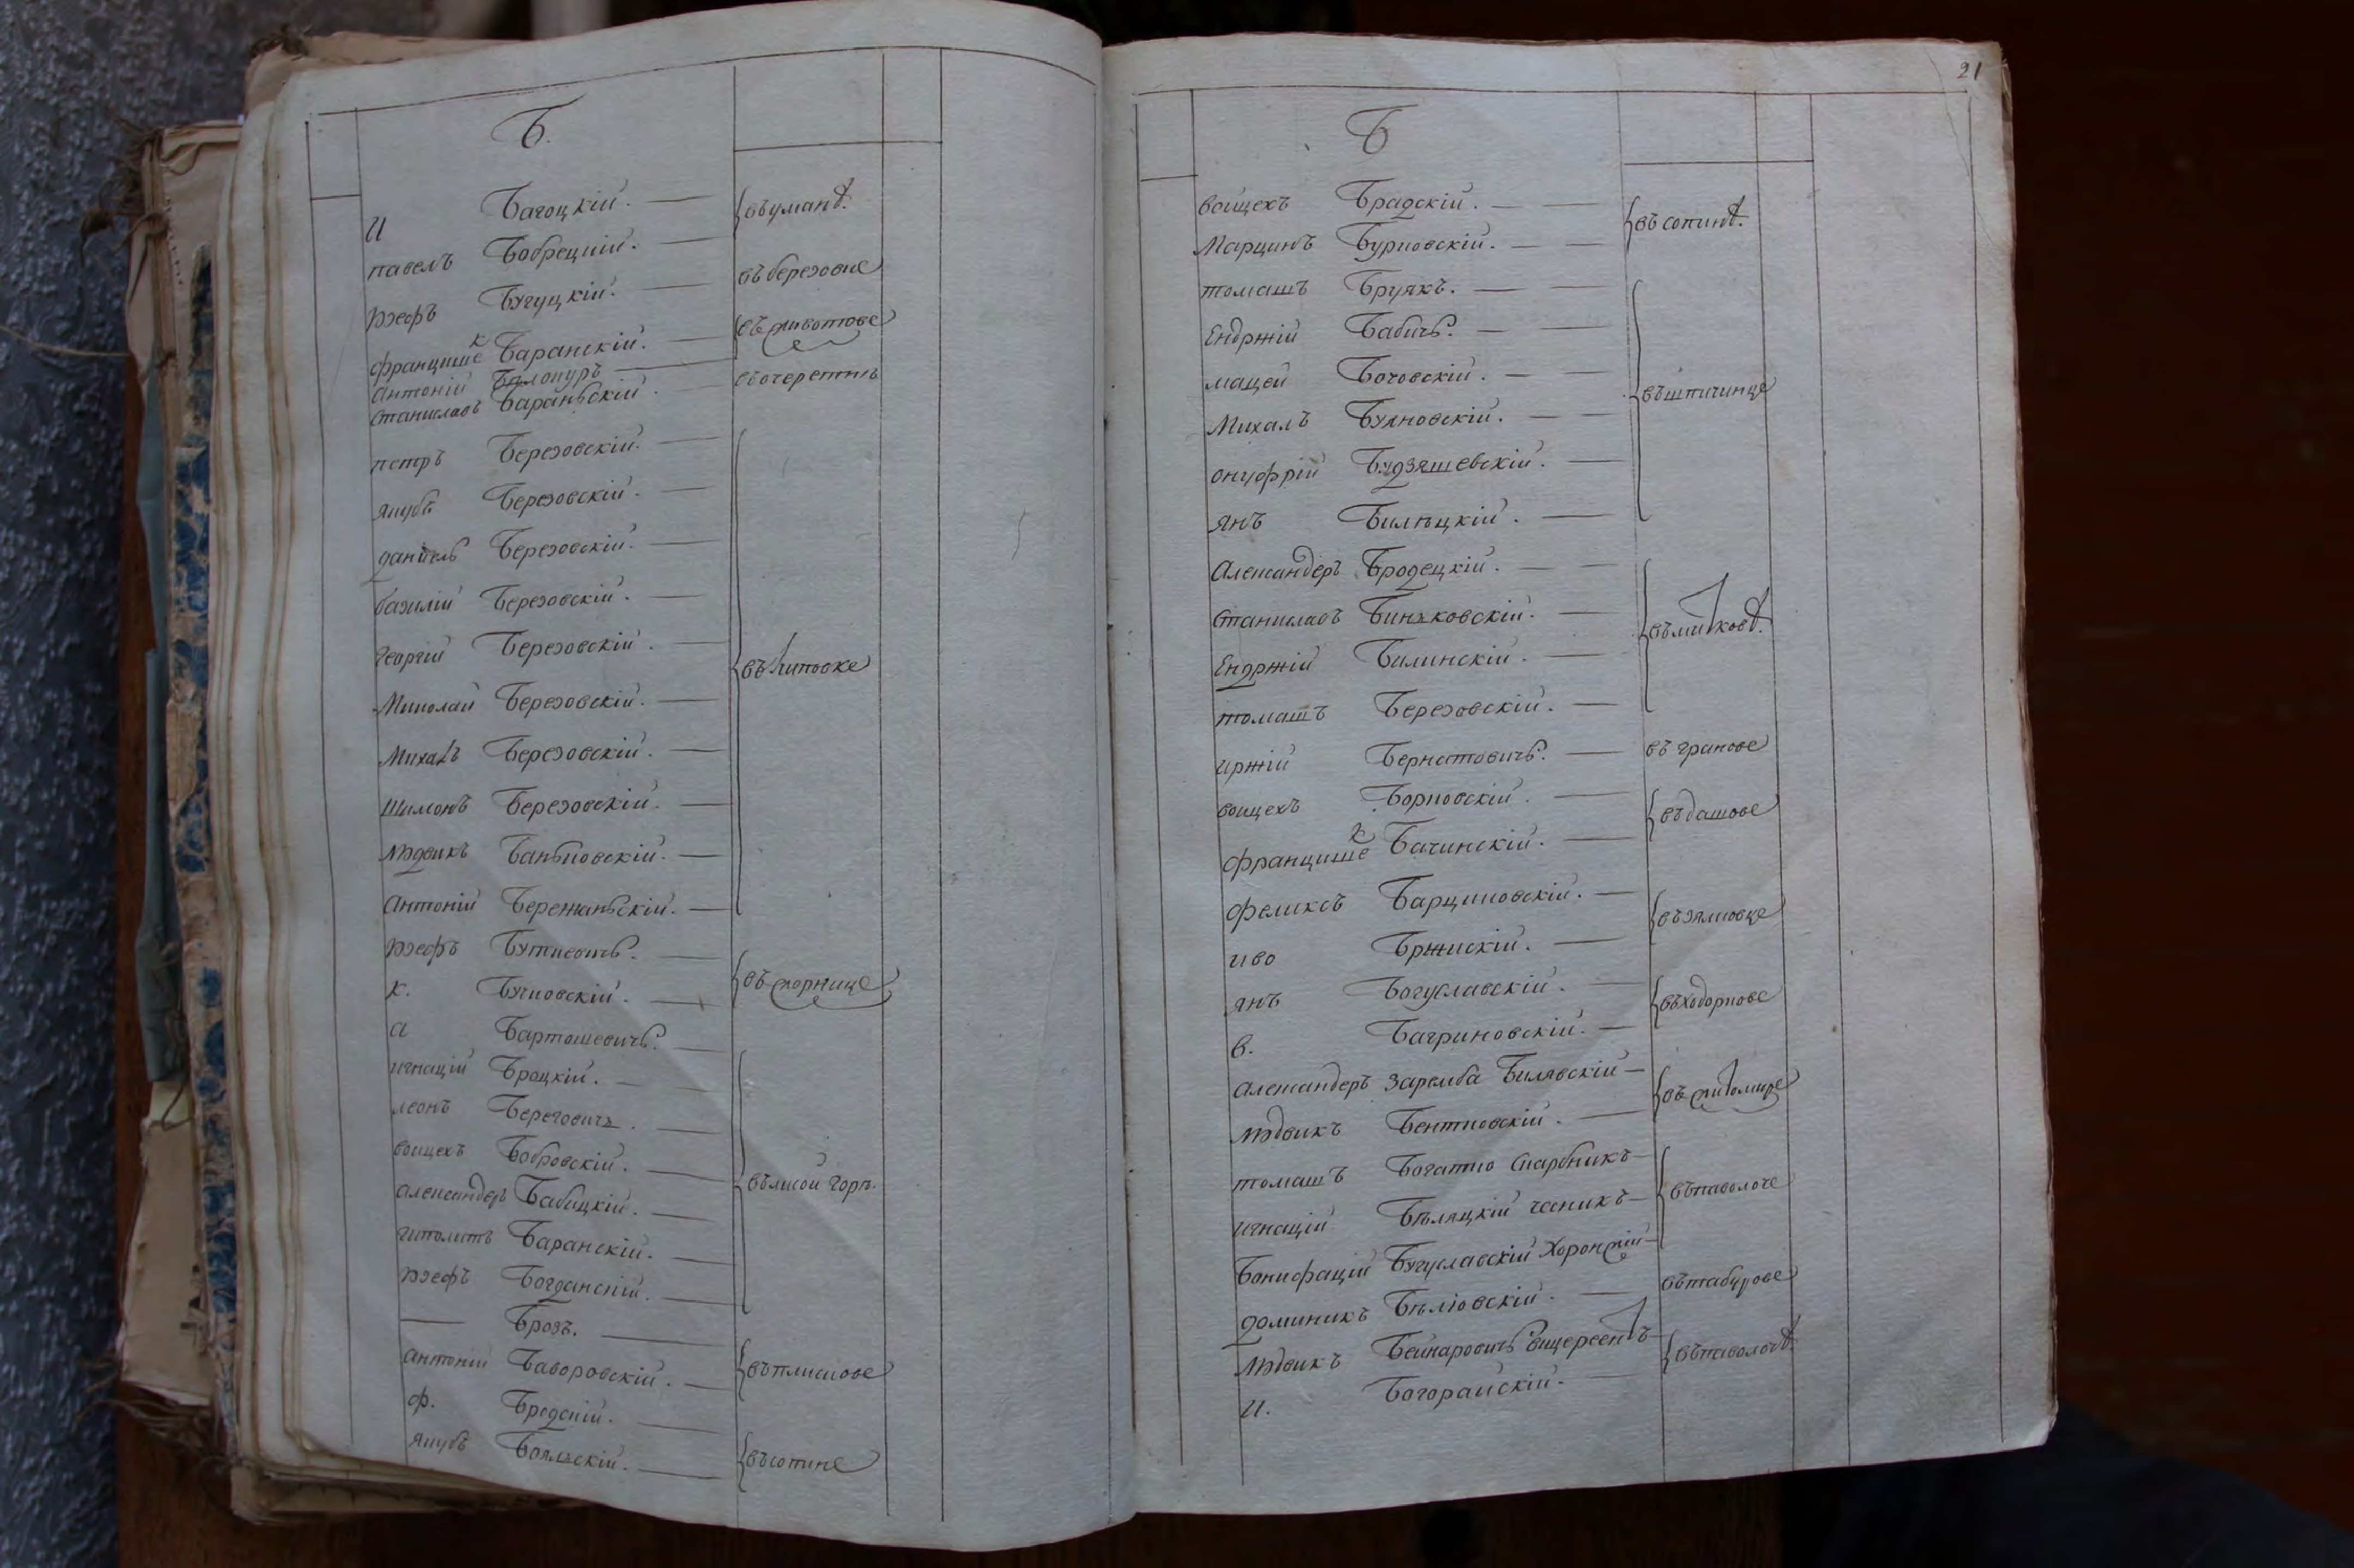 Б.
И Багоцкій. — въ уманѣ.
павелъ Бобрецкій. —
Юзефъ Бугуцкій. — въ березовке
францише к Баранскій. — въ животове
антоній Балопуръ —
станиславъ Бараньскій. въ очеретнѣ
петръ Березовскій. —
якубъ Березовскій. —
даніель Березовскій. —
базилій Березовскій. —
георгій Березовскій. — въ липовке
Миколай Березовскій. —
Михалъ Березовскій. —
Шимонъ Березовскій. —
людвикъ Баньковскій. —
антоній Бережаньскій. —
Юзефъ Буткевичъ. —
К. Бучковскій. — въ скорнице
а Бартошевичъ. —
игнацій Броцкій. —
леонъ Береговичъ. —
воицехъ Бобровскій. —
александеръ Бабицкій. — въ лисой горѣ.
гиполитъ Баранскій. —
Юзефъ Богданскій. —
— Брозъ. —
антоній Баворовскій. — въ плискове
ф. Бродскій. —
якубъ Боялскій. — въ сопине
21
Б
воицехъ Брадскій. — — въ сопинѣ.
Марцинъ Бурковскій. — —
томашъ Бруякъ. — —
Ендржій Бабичъ. —
мацей Боговскій. — — въ шпичинце
Михалъ Буяновскій. — —
онуфрій Будзяшевскій. —
янъ Билѣцкій. —
Александеръ Бродецкій. — —
станиславъ Биньковскій. — въ митковѣ.
Ендржій Билинскій. —
томашъ Березовскій. —
иржій Бернатовичъ. — въ гранове
воицехъ Борковскій. — въ дашове
францише к Бачинскій. —
феликсъ Барциковскій. — въ зяловце
иво Бржискій. —
янъ Богуславскій. — въ ходоркове
в. Багриновскій. —
александеръ заремба Билявскій — въ житомире
людвикъ Бентковскій. —
томашъ Богатко скарбникъ —
игнацій Бѣляцкій чесникъ — въ паволоче
Бонифацій Бугуславскій Хоронжій —
доминикъ Бѣліовскій. — въ табурове
людвикъ Бейнаровичъ вицереентъ — въ паволочѣ.
И. Богорайскій. —